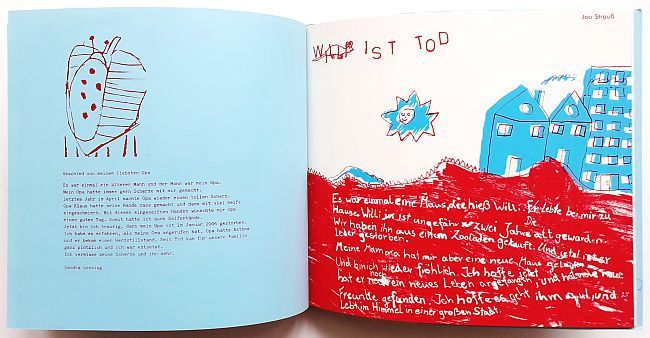 Abschied von meinem liebsten Opa
Es war einmal ein älterer Mann und der Mann war mein Opa.
Mein Opa hatte immer gern Scherze mit mir gemacht.
Letztes Jahr im April machte Opa wieder einen tollen Scherz.
Opa Klaus hatte seine Hände nass gemacht und dann mit viel Seife
eingeschmiert. Mit diesen eingeseiften Händen wünschte mir Opa
einen guten Tag. Somit hatte ich auch Seifenhände.
Jetzt bin ich traurig, denn mein Opa ist im Januar 2006 gestorben.
Ich habe es erfahren, als meine Oma angerufen hat. Opa hatte Asthma
und er bekam einen Herzstillstand. Sein Tod kam für unsere Familie
ganz plötzlich und ich war entsetzt.
Ich vermisse seine Scherze und ihn sehr.
Sandra Lessing
Josi Strauß
IST TOD
Es war einmal eine Maus, die hieß Willi. Er lebte bei mir zu
Hause. Willi ist ungefähr zwei Jahre alt geworden.
Wir haben ihn aus einem Zooladen gekauft. Und jetzt ist er
Leider gestorben.
Meine Mama hat mir aber eine neue Maus
Und bin ich wieder fröhlich. Ich hoffe jetzt
hat er noch ein neues Leben angefangen und neue
Freunde gefunden. Ich hoffe es geht ihm gut und
Lebt im Himmel in einer großen Stadt.